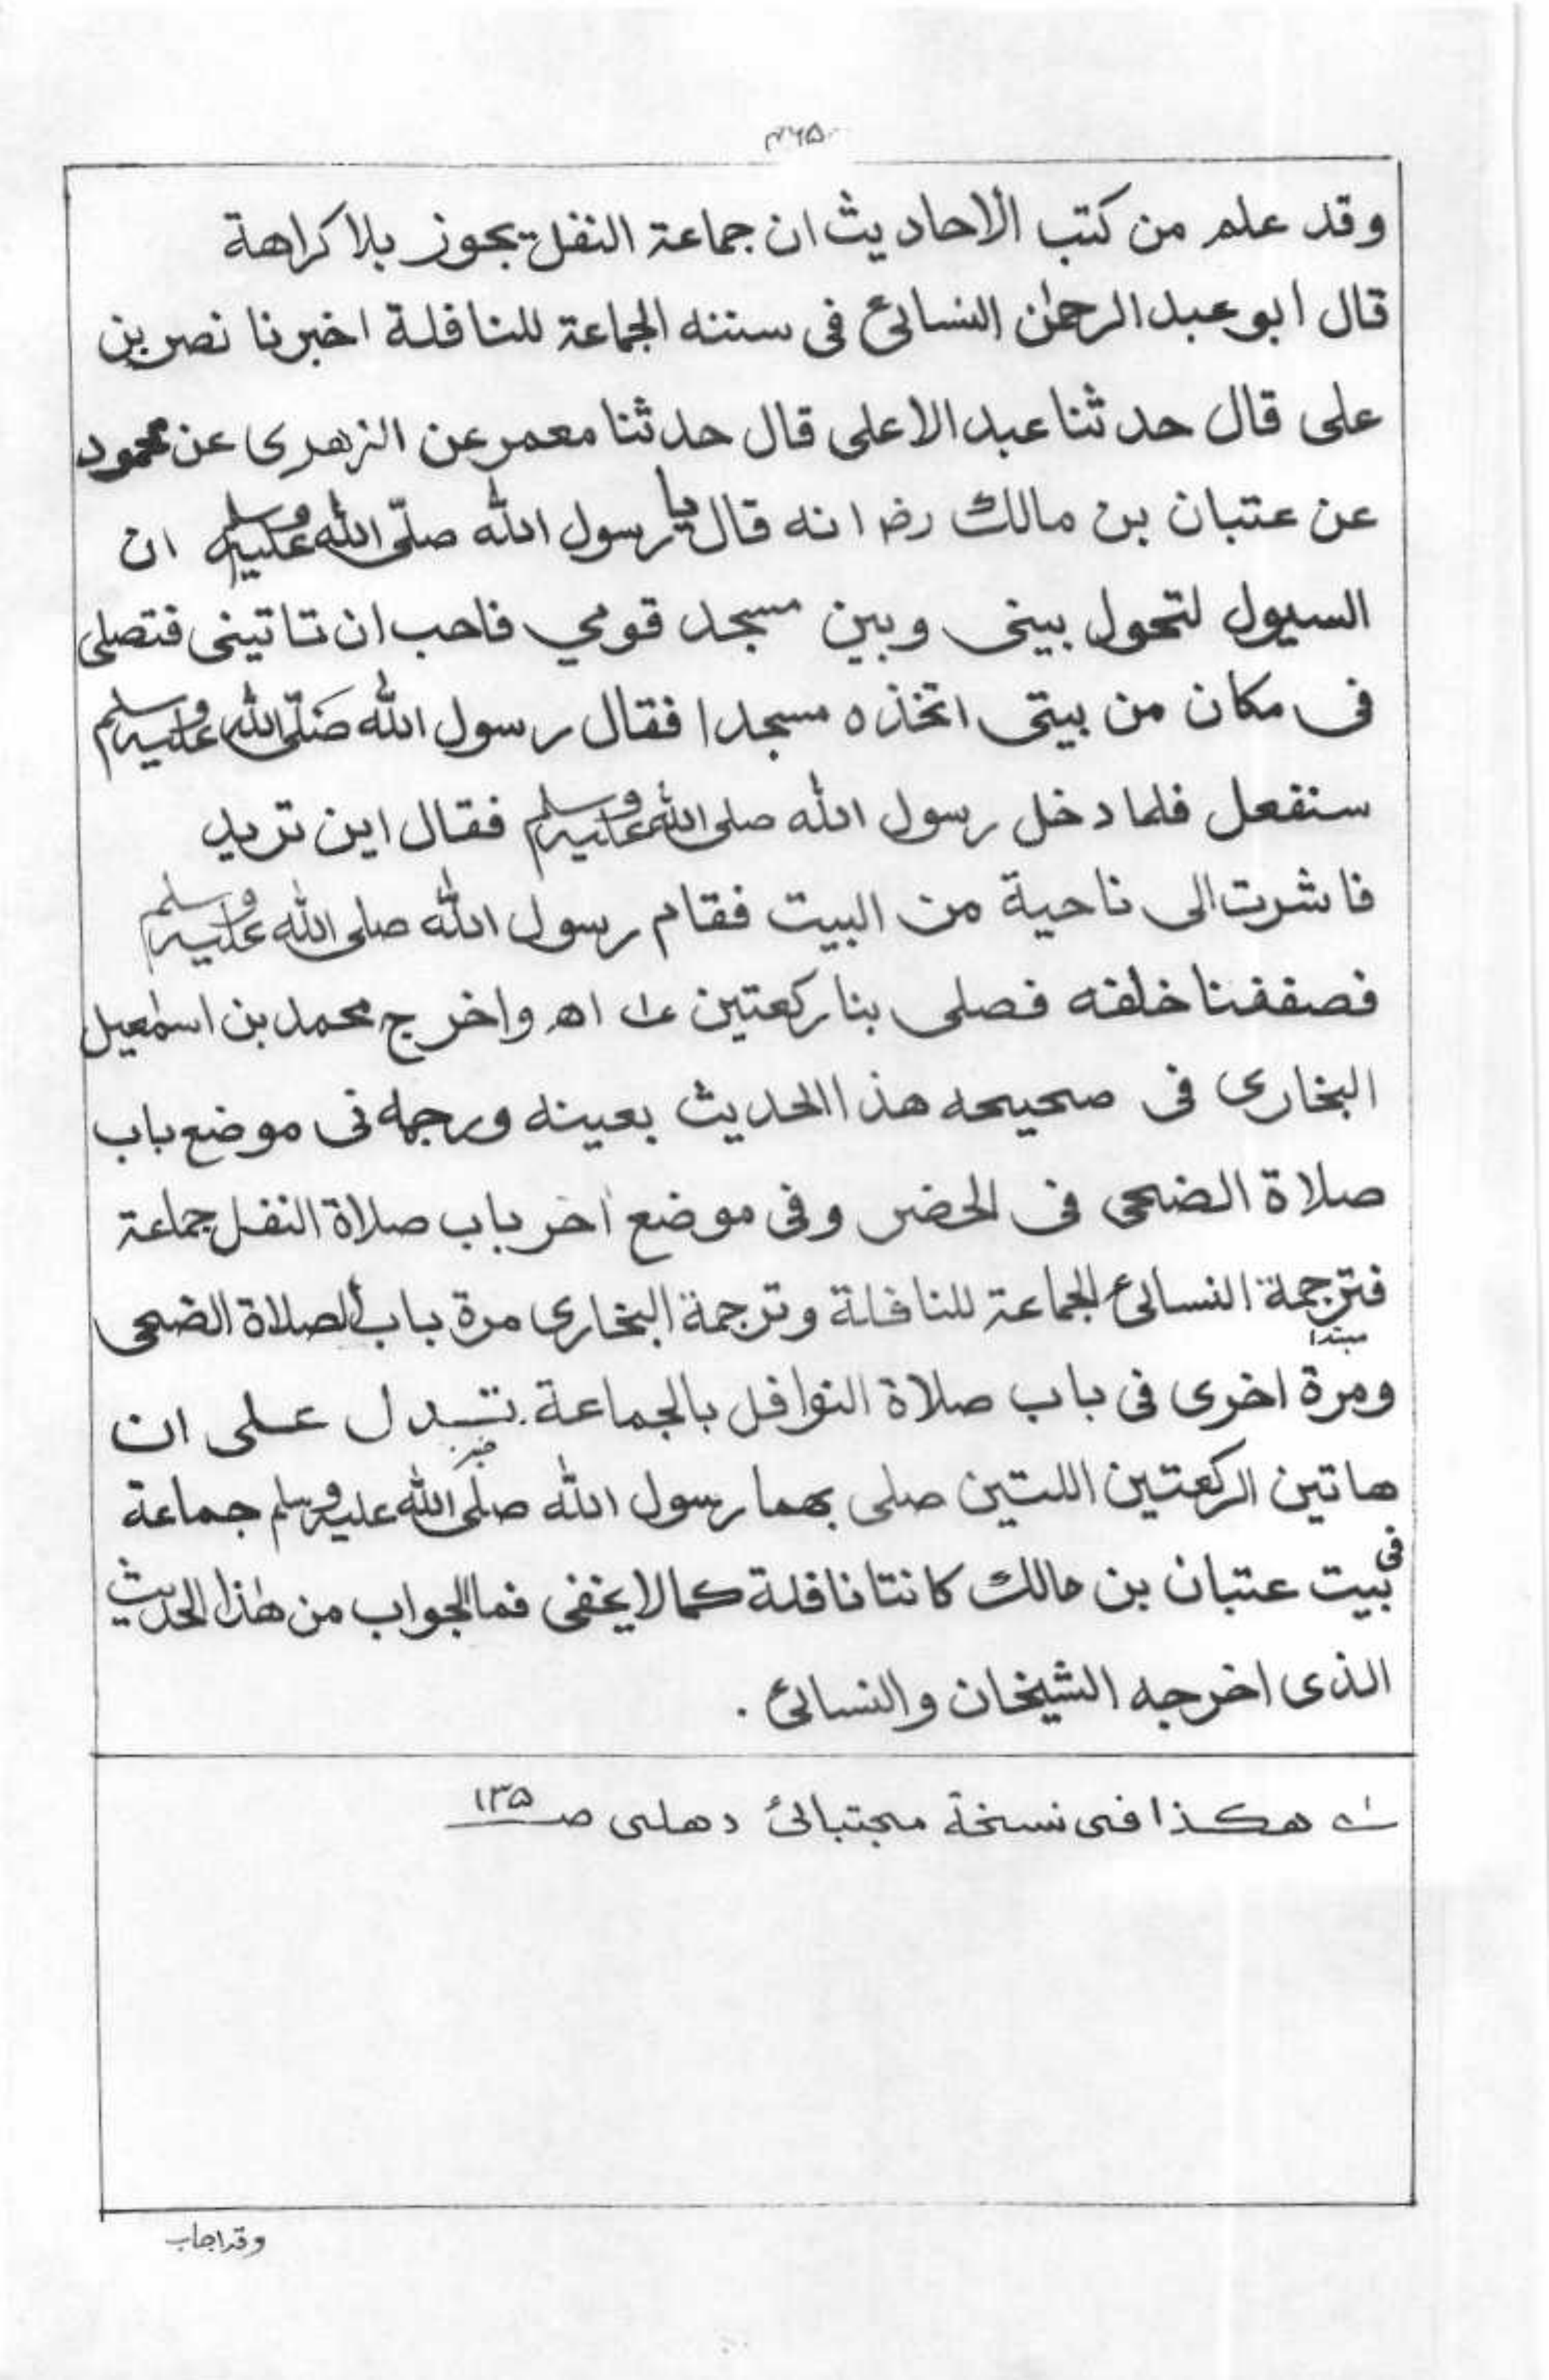 ۴۶۵
وقد علم من كتب الأحاديث ان جماعة النفل يجوز بلا كراهة
قال ابو عبد الرحمٰن النسائیؒ فی سننه الجماعة للنافلة اخبرنا نصر بن
علی قال حدثنا عبد الاعلی قال حدثنا معمر عن الزهری عن محمود
عن عتبان بن مالك رضـ انه قال يا رسول الله صلّی الله علیہ وسلم ان
السيول لتحول بينی وبين مسجد قومي فاحب ان تاتينی فتصلی
فی مكان من بيتی اتخذه مسجدا فقال رسول الله صَلّی الله علیہ وسلم
سنفعل فلما دخل رسول الله صلی الله علیہ وسلم فقال اين تريد
فاشرت الی ناحية من البيت فقام رسول الله صلی الله علیہ وسلم
فصففنا خلفه فصلی بنا ركعتين اھ واخرج محمد بن اسمٰعيل
البخاری فی صحيحه هذا الحديث بعينه ورجمه فی موضع باب
صلاة الضحی فی الحضر وفی موضع اٰخر باب صلاة النفل جماعة
فترجمة النسائیؒ الجماعة للنافلة وترجمة البخاری مرة باب الصلاة الضحی
مبتدا
ومرة اخری فی باب صلاة النوافل بالجماعة تدل علی ان
خبر
هاتين الركعتين اللتين صلی بهما رسول الله صلّی الله علیہ وسلم جماعة
فی بيت عتبان بن مالك كانتا نافلة كما لا يخفی فما الجواب من هٰذا الحديث
الذی اخرجه الشيخان والنسائیؒ .
هكذا فی نسخة مجتبائی دهلی صـ ۱۳۵
وقد اجاب